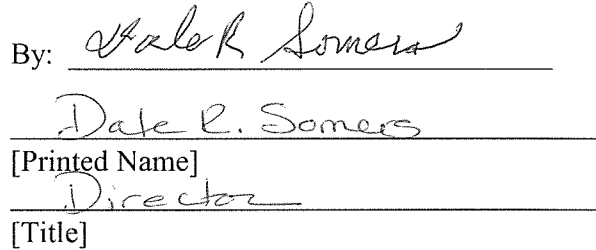 By: Dale R Somers
Dale R. Somers
[Printed Name]
Director
[Title]